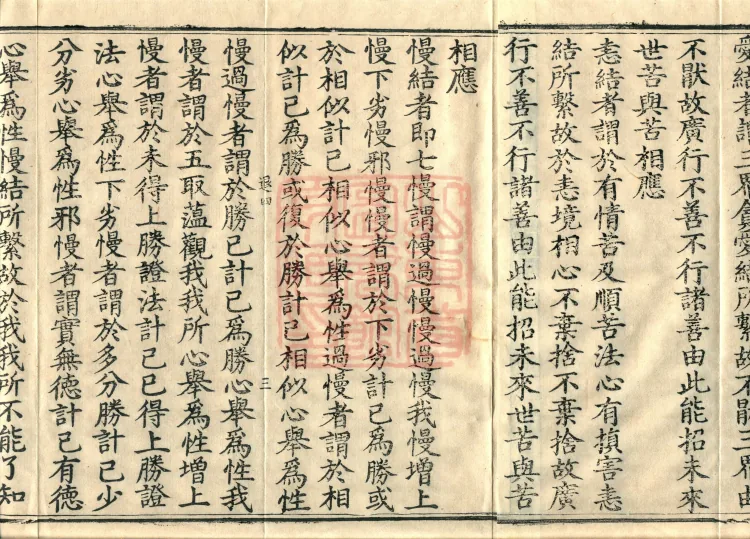 愛結者謂三界貪愛結所繫故不厭三界由
不厭故廣行不善不行諸善由此能招未來
世苦與苦相應
恚結者謂於有情苦及順苦法心有損害恚
結所繫故於恚境相心不棄捨不棄捨故廣
行不善不行諸善由此能招未來世苦與苦
相應
慢結者即七慢謂慢過慢慢過慢我慢增上
慢下劣慢邪慢慢者謂於下劣計己爲勝或
於相似計己相似心舉爲性過慢者謂於相
似計己爲勝或復於勝計己相似心舉爲性
三
慢過慢者謂於勝己計己爲勝心舉爲性我
慢者謂於五取蘊觀我我所心舉爲性增上
慢者謂於未得上勝證法計己已得上勝證
法心舉爲性下劣慢者謂於多分勝計己少
分劣心舉爲性邪慢者謂實無德計己有德
心舉爲性慢結所繫故於我我所不能了知